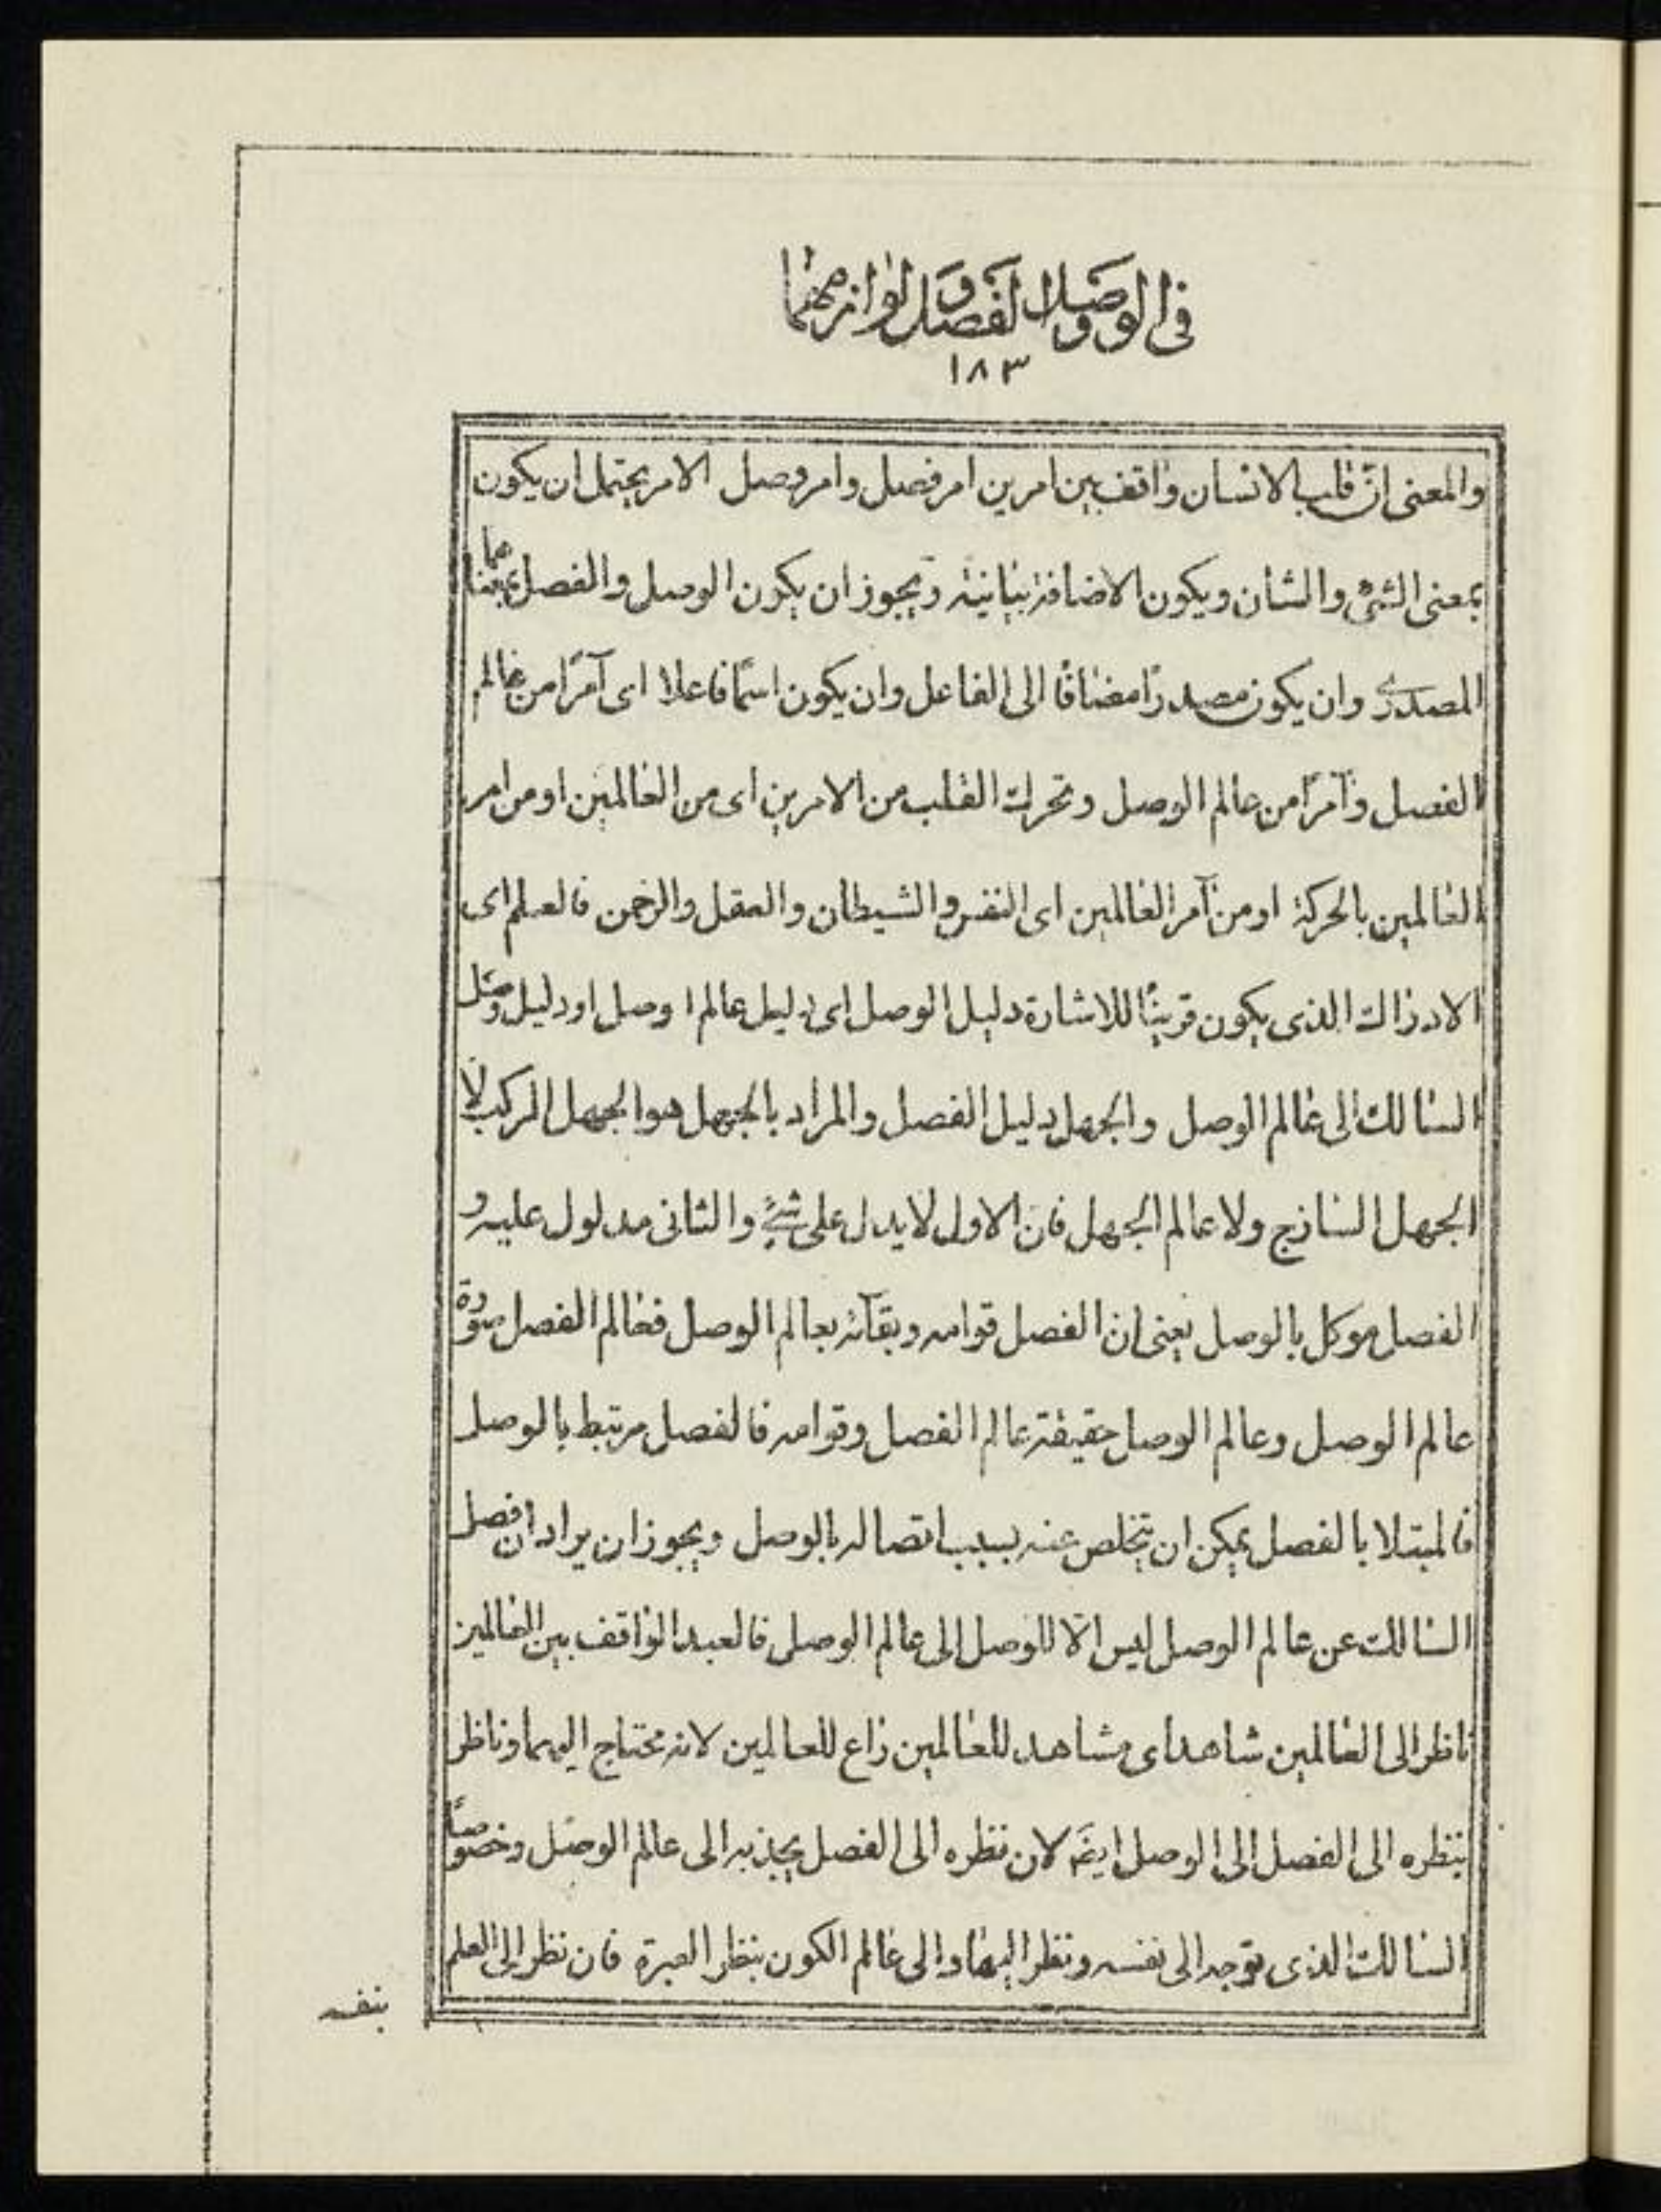 فى الوصل والفصل ولوازمهما
١٨٣
والمعنى انّ قلب الانسان واقف بين امرين امر فصل وامر وصل الامر يحتمل ان يكون
بمعنى الشئ والشان ويكون الاضافة بيانية ويجوز ان يكون الوصل والفصل بمعناهما
المصدرى وان يكون مصدرًا مضافًا الى الفاعل وان يكون اسمًا فاعلا اى آمرًا من عالم
الفصل وآمرًا من عالم الوصل وتحرك القلب من الامرين اى من العالمين او من امر
العالمين بالحركة او من آمر العالمين اى النفس والشيطان والعقل والرحمن فالعلم اى
الادراك الذى يكون قرينًا للاشارة دليل الوصل اى دليل عالم ا وصل او دليل وصل
السالك الى عالم الوصل والجهل دليل الفصل والمراد بالجهل هو الجهل المركب لا
الجهل الساذج ولا عالم الجهل فان الاول لا يدل على شئ والثانى مدلول عليه و
الفصل موكل بالوصل يعنى ان الفصل قوامه وبقآئه بعالم الوصل فعالم الفصل صورة
عالم الوصل وعالم الوصل حقيقة عالم الفصل وقوامه فالفصل مرتبط بالوصل
فالمبتلا بالفصل يمكن ان يتخلص عنه بسبب اتصاله بالوصل ويجوز ان يراد ان فصل
السالك عن عالم الوصل ليس الّا للوصل الى عالم الوصل فالعبد الواقف بين العالمين
ناظر الى العالمين شاهد اى مشاهد للعالمين راع للعالمين لانه محتاج اليهما وناظر
بنظره الى الفصل الى الوصل ايضَ لان نظره الى الفصل يجذبه الى عالم الوصل وخصوصًا
السالك الذى توجه الى نفسه ونظر اليها والى عالم الكون بنظر العبرة فان نظر الى العلم
بنفسه